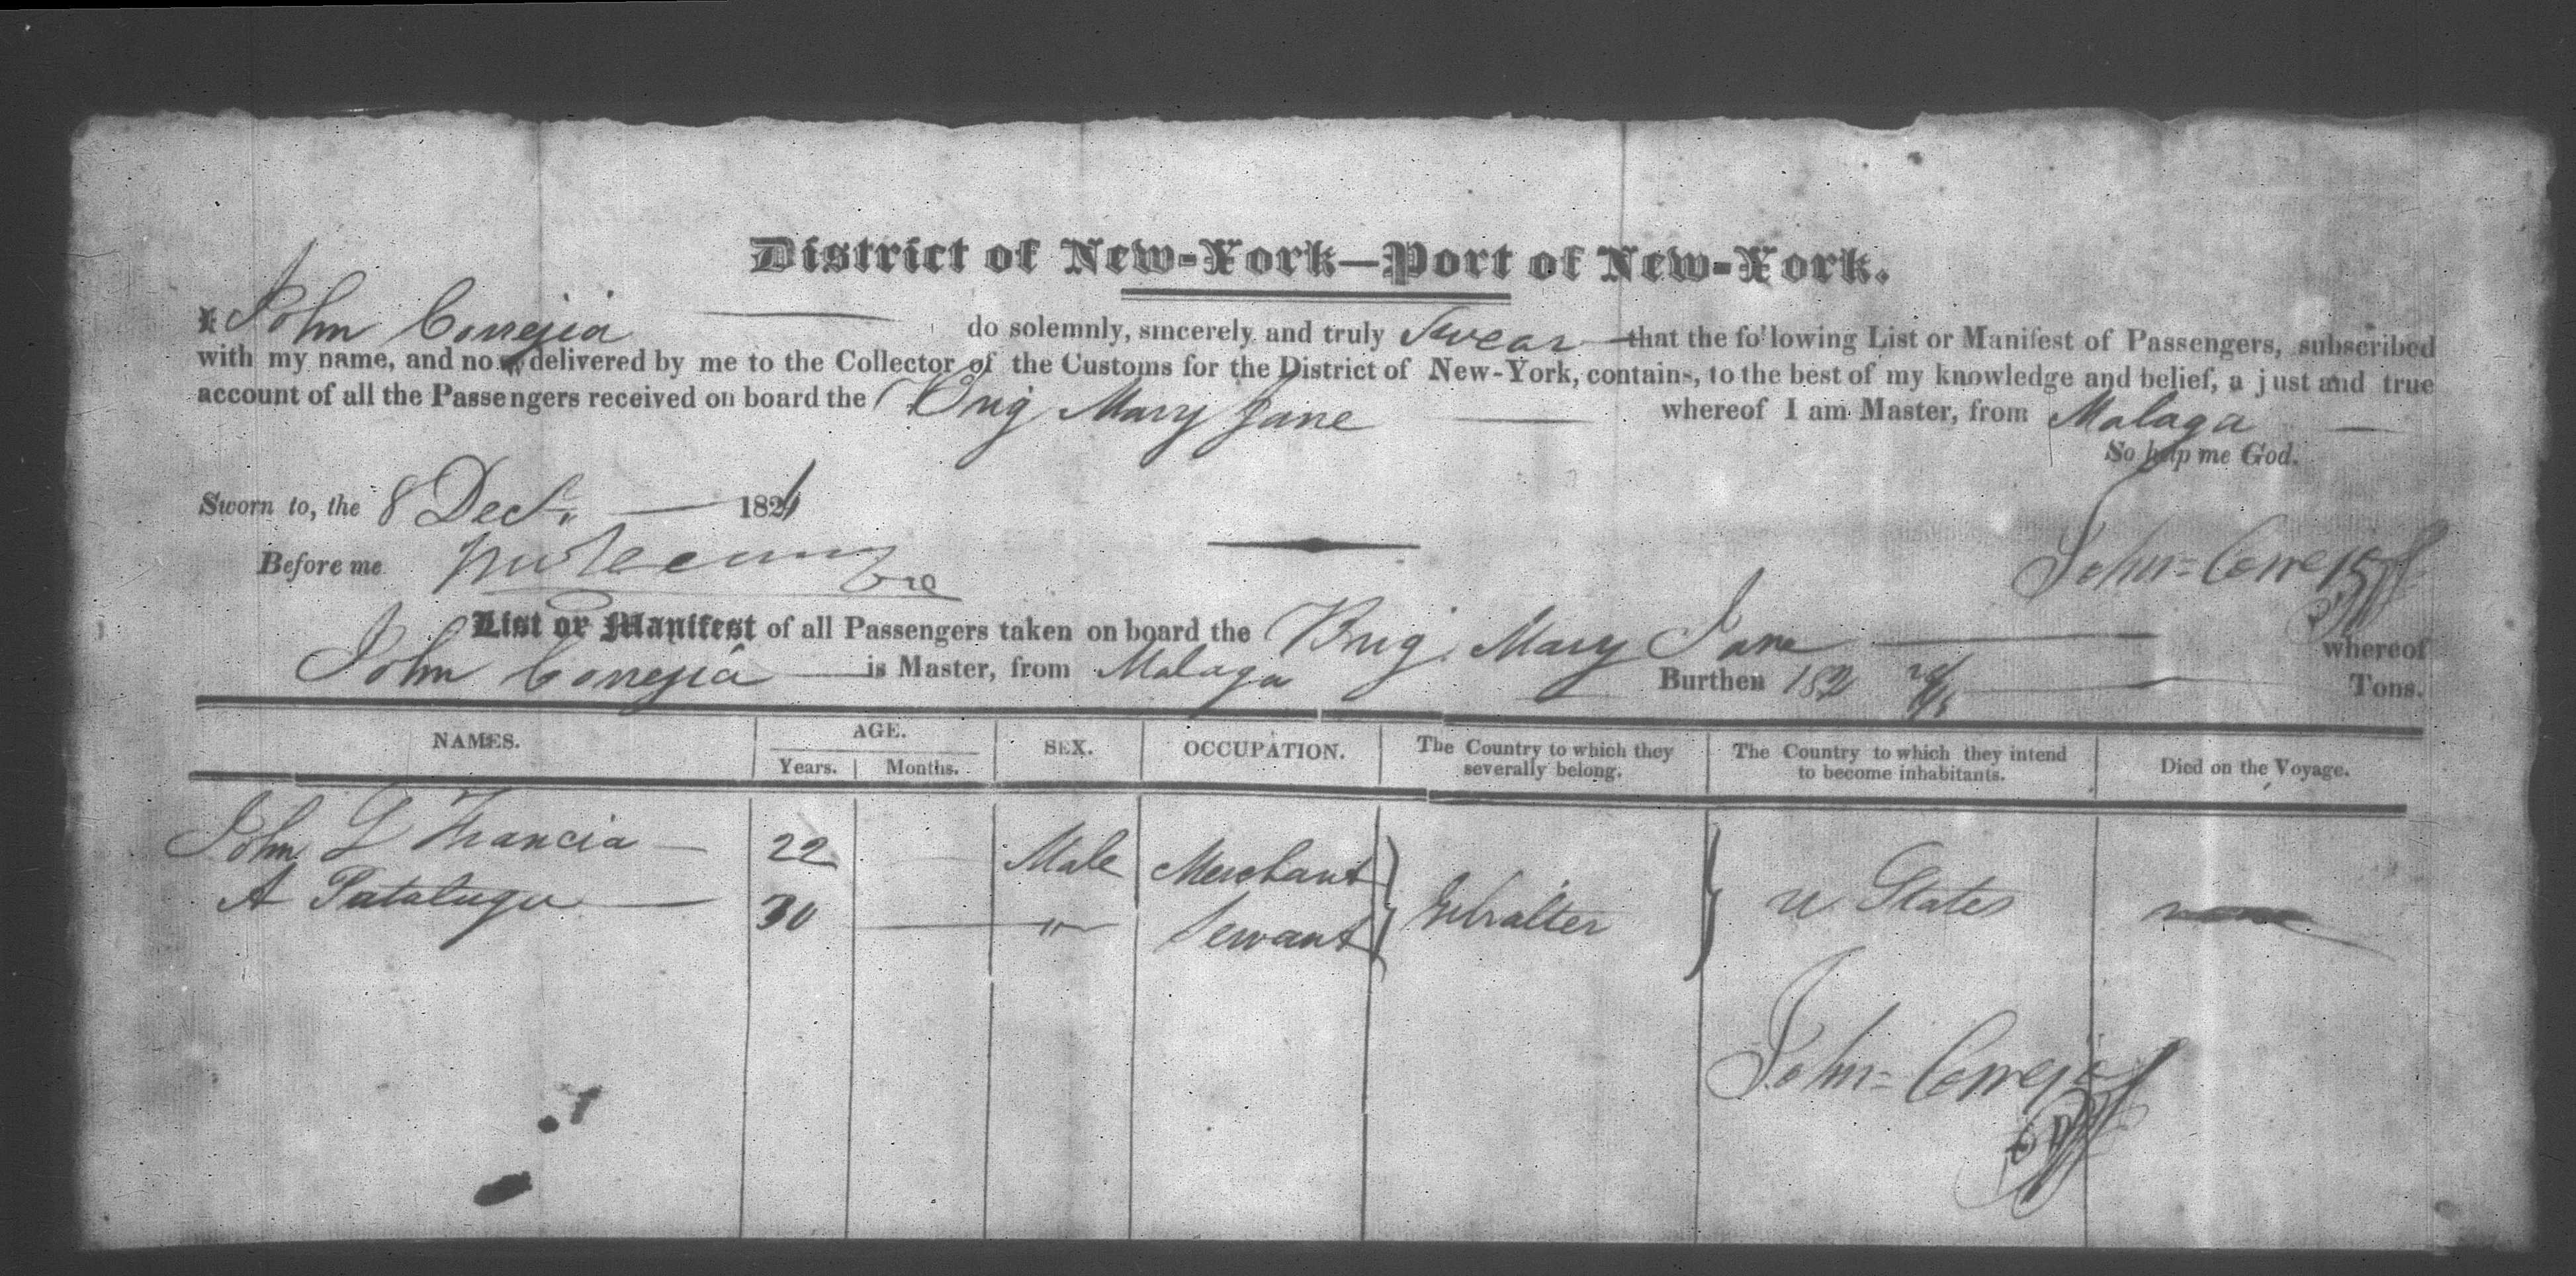 District of New-York—Port of New-York.
I John Correjia do solemnly, sincerely and truly Swear that the following List or Manifest of Passengers, subscribed
with my name, and now delivered by me to the Collector of the Customs for the District of New-York, contains, to the best of my knowledge and belief, a just and true
account of all the Passengers received on board the Brig Mary Jane whereof I am Master, from Malaga
So help me God.
Sworn to, the 8 Decr. 1824
Before me
John = Correja
List or Manifest of all Passengers taken on board the Brig Mary Jane whereof
John Correjia is Master, from Malaga Burthen 182 Tons.
NAMES. AGE. SEX. OCCUPATION. The Country to which they severally belong. The Country to which they intend to become inhabitants. Died on the Voyage.
Years. Months.
John L Francia 22 Male Merchant
A Pataluga 30 " Servant
Gibralter U States none
John = Correja